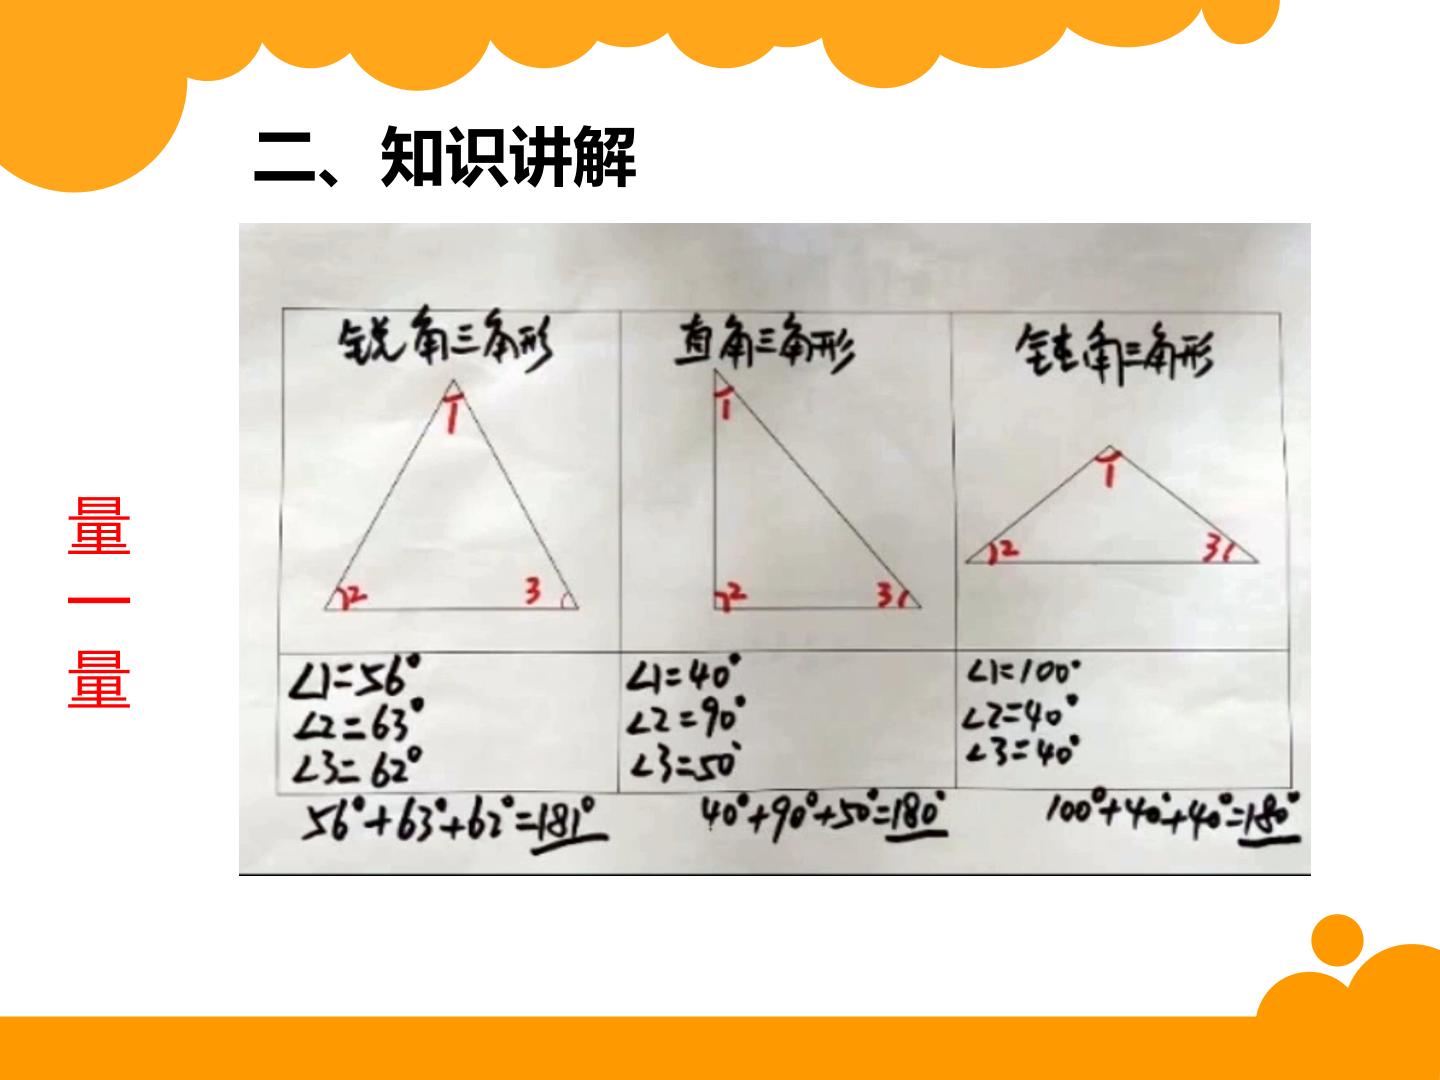 二、知识讲解
量一量
锐角三角形
1
2
3
∠1=56°
∠2=63°
∠3=62°
56°+63°+62°=181°
直角三角形
1
2
3
∠1=40°
∠2=90°
∠3=50°
40°+90°+50°=180°
钝角三角形
1
2
3
∠1=100°
∠2=40°
∠3=40°
100°+40°+40°=180°